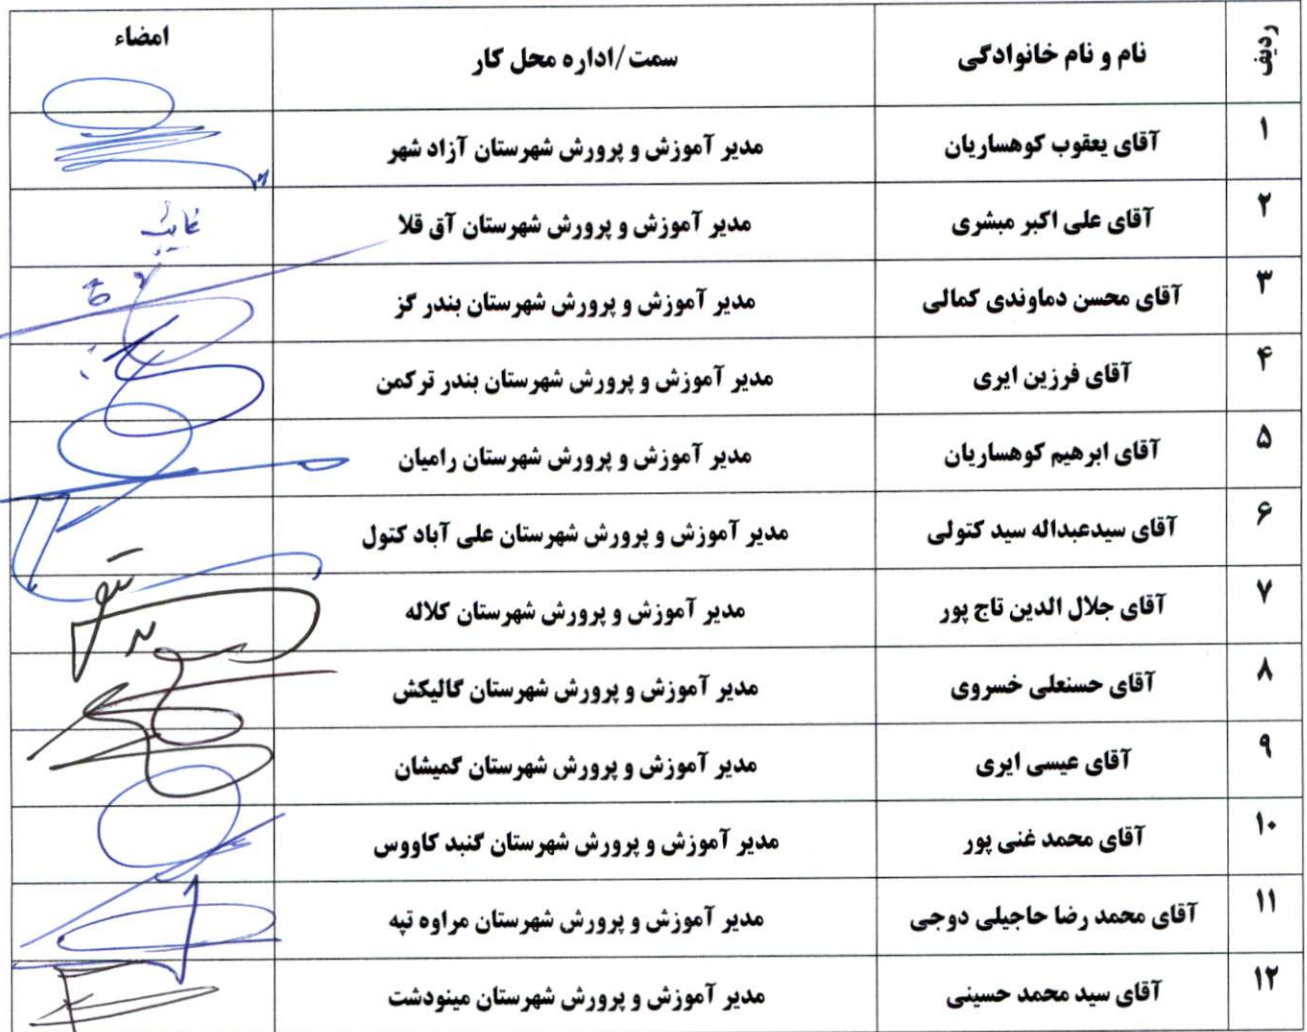 ردیف نام و نام خانوادگی سمت/اداره محل کار امضاء
۱ آقای یعقوب کوهساریان مدیر آموزش و پرورش شهرستان آزاد شهر
۲ آقای علی اکبر مبشری مدیر آموزش و پرورش شهرستان آق قلا غایب
۳ آقای محسن دماوندی کمالی مدیر آموزش و پرورش شهرستان بندر گز
۴ آقای فرزین ایری مدیر آموزش و پرورش شهرستان بندر ترکمن
۵ آقای ابرهیم کوهساریان مدیر آموزش و پرورش شهرستان رامیان
۶ آقای سیدعبداله سید کتولی مدیر آموزش و پرورش شهرستان علی آباد کتول
۷ آقای جلال الدین تاج پور مدیر آموزش و پرورش شهرستان کلاله
۸ آقای حسنعلی خسروی مدیر آموزش و پرورش شهرستان گالیکش
۹ آقای عیسی ایری مدیر آموزش و پرورش شهرستان گمیشان
۱۰ آقای محمد غنی پور مدیر آموزش و پرورش شهرستان گنبد کاووس
۱۱ آقای محمد رضا حاجیلی دوجی مدیر آموزش و پرورش شهرستان مراوه تپه
۱۲ آقای سید محمد حسینی مدیر آموزش و پرورش شهرستان مینودشت